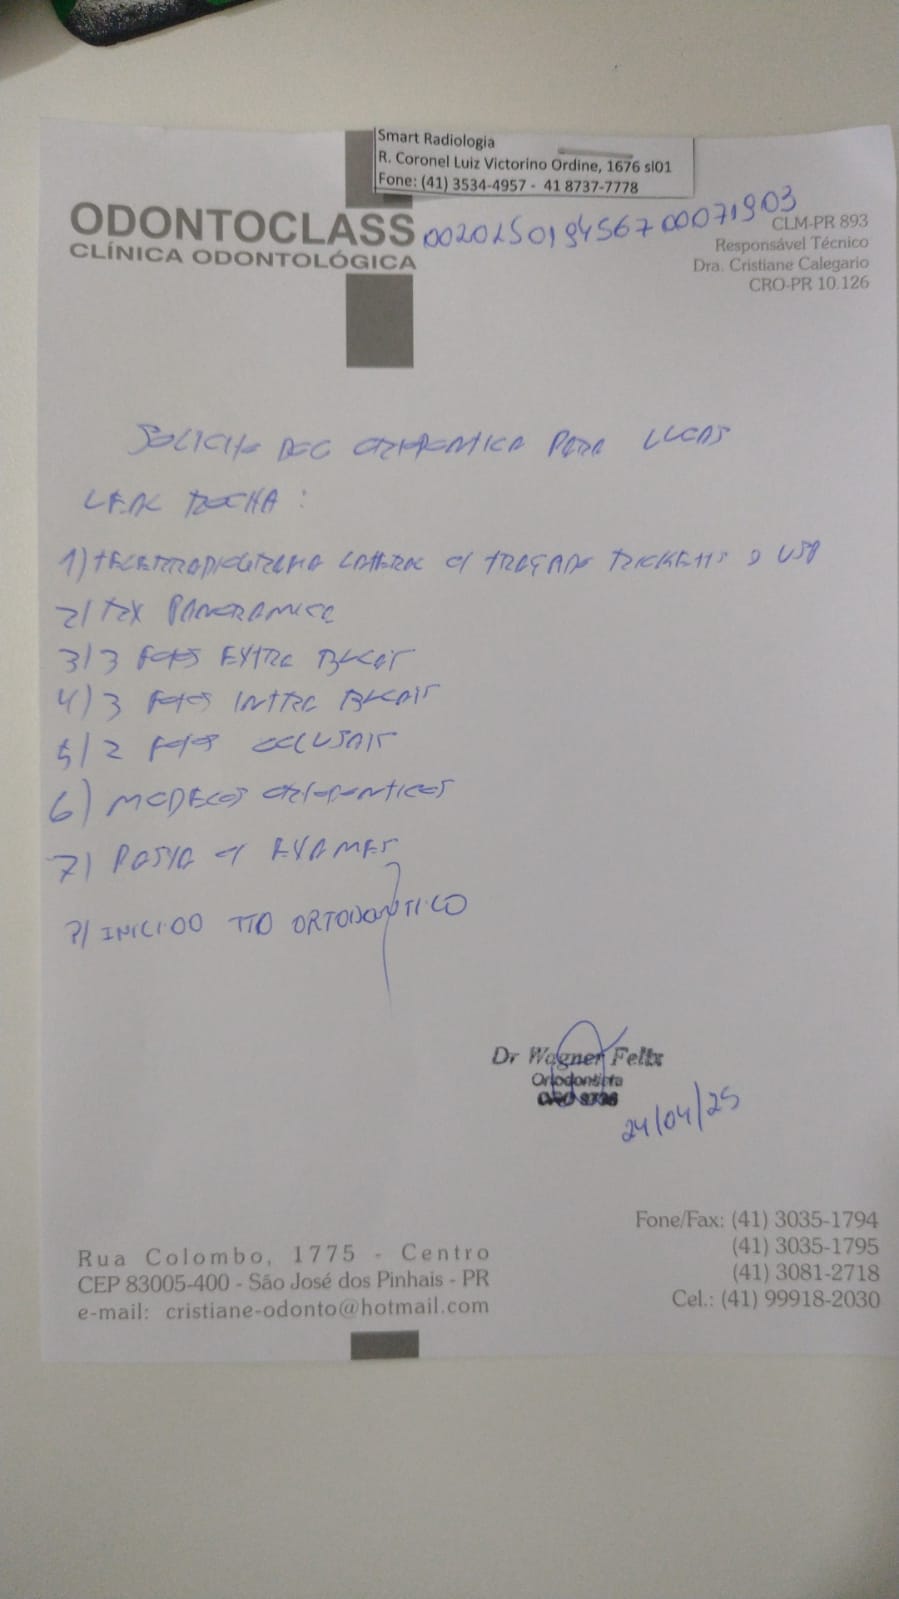 Smart Radiologia
R. Coronel Luiz Victorino Ordine, 1676 sl01
Fone: (41) 3534-4957 - 41 8737-7778
ODONTOCLASS
CLÍNICA ODONTOLÓGICA
00202501945670007​1903
CLM-PR 893
Responsável Técnico
Dra. Cristiane Calegario
CRO-PR 10.126
SOLICITO DOC ORTODONTICA PARA LUCAS
LEAL ROCHA :
1) TELERRADIOGRAFIA LATERAL C/ TRAÇADO RICKETTS e USP
2) RX PANORAMICA
3) 3 FOTOS EXTRA BUCAIS
4) 3 FOTOS INTRA BUCAIS
5) 2 FOTOS OCLUSAIS
6) MODELOS ORTODONTICOS
7) PASTA C/ EXAMES
P/ INICIDO TTO ORTODONTICO
Dr Wagner Felix
Ortodontista
CRO 8736
24/04/25
Rua Colombo, 1775 - Centro
CEP 83005-400 - São José dos Pinhais - PR
e-mail: cristiane-odonto@hotmail.com
Fone/Fax: (41) 3035-1794
(41) 3035-1795
(41) 3081-2718
Cel.: (41) 99918-2030